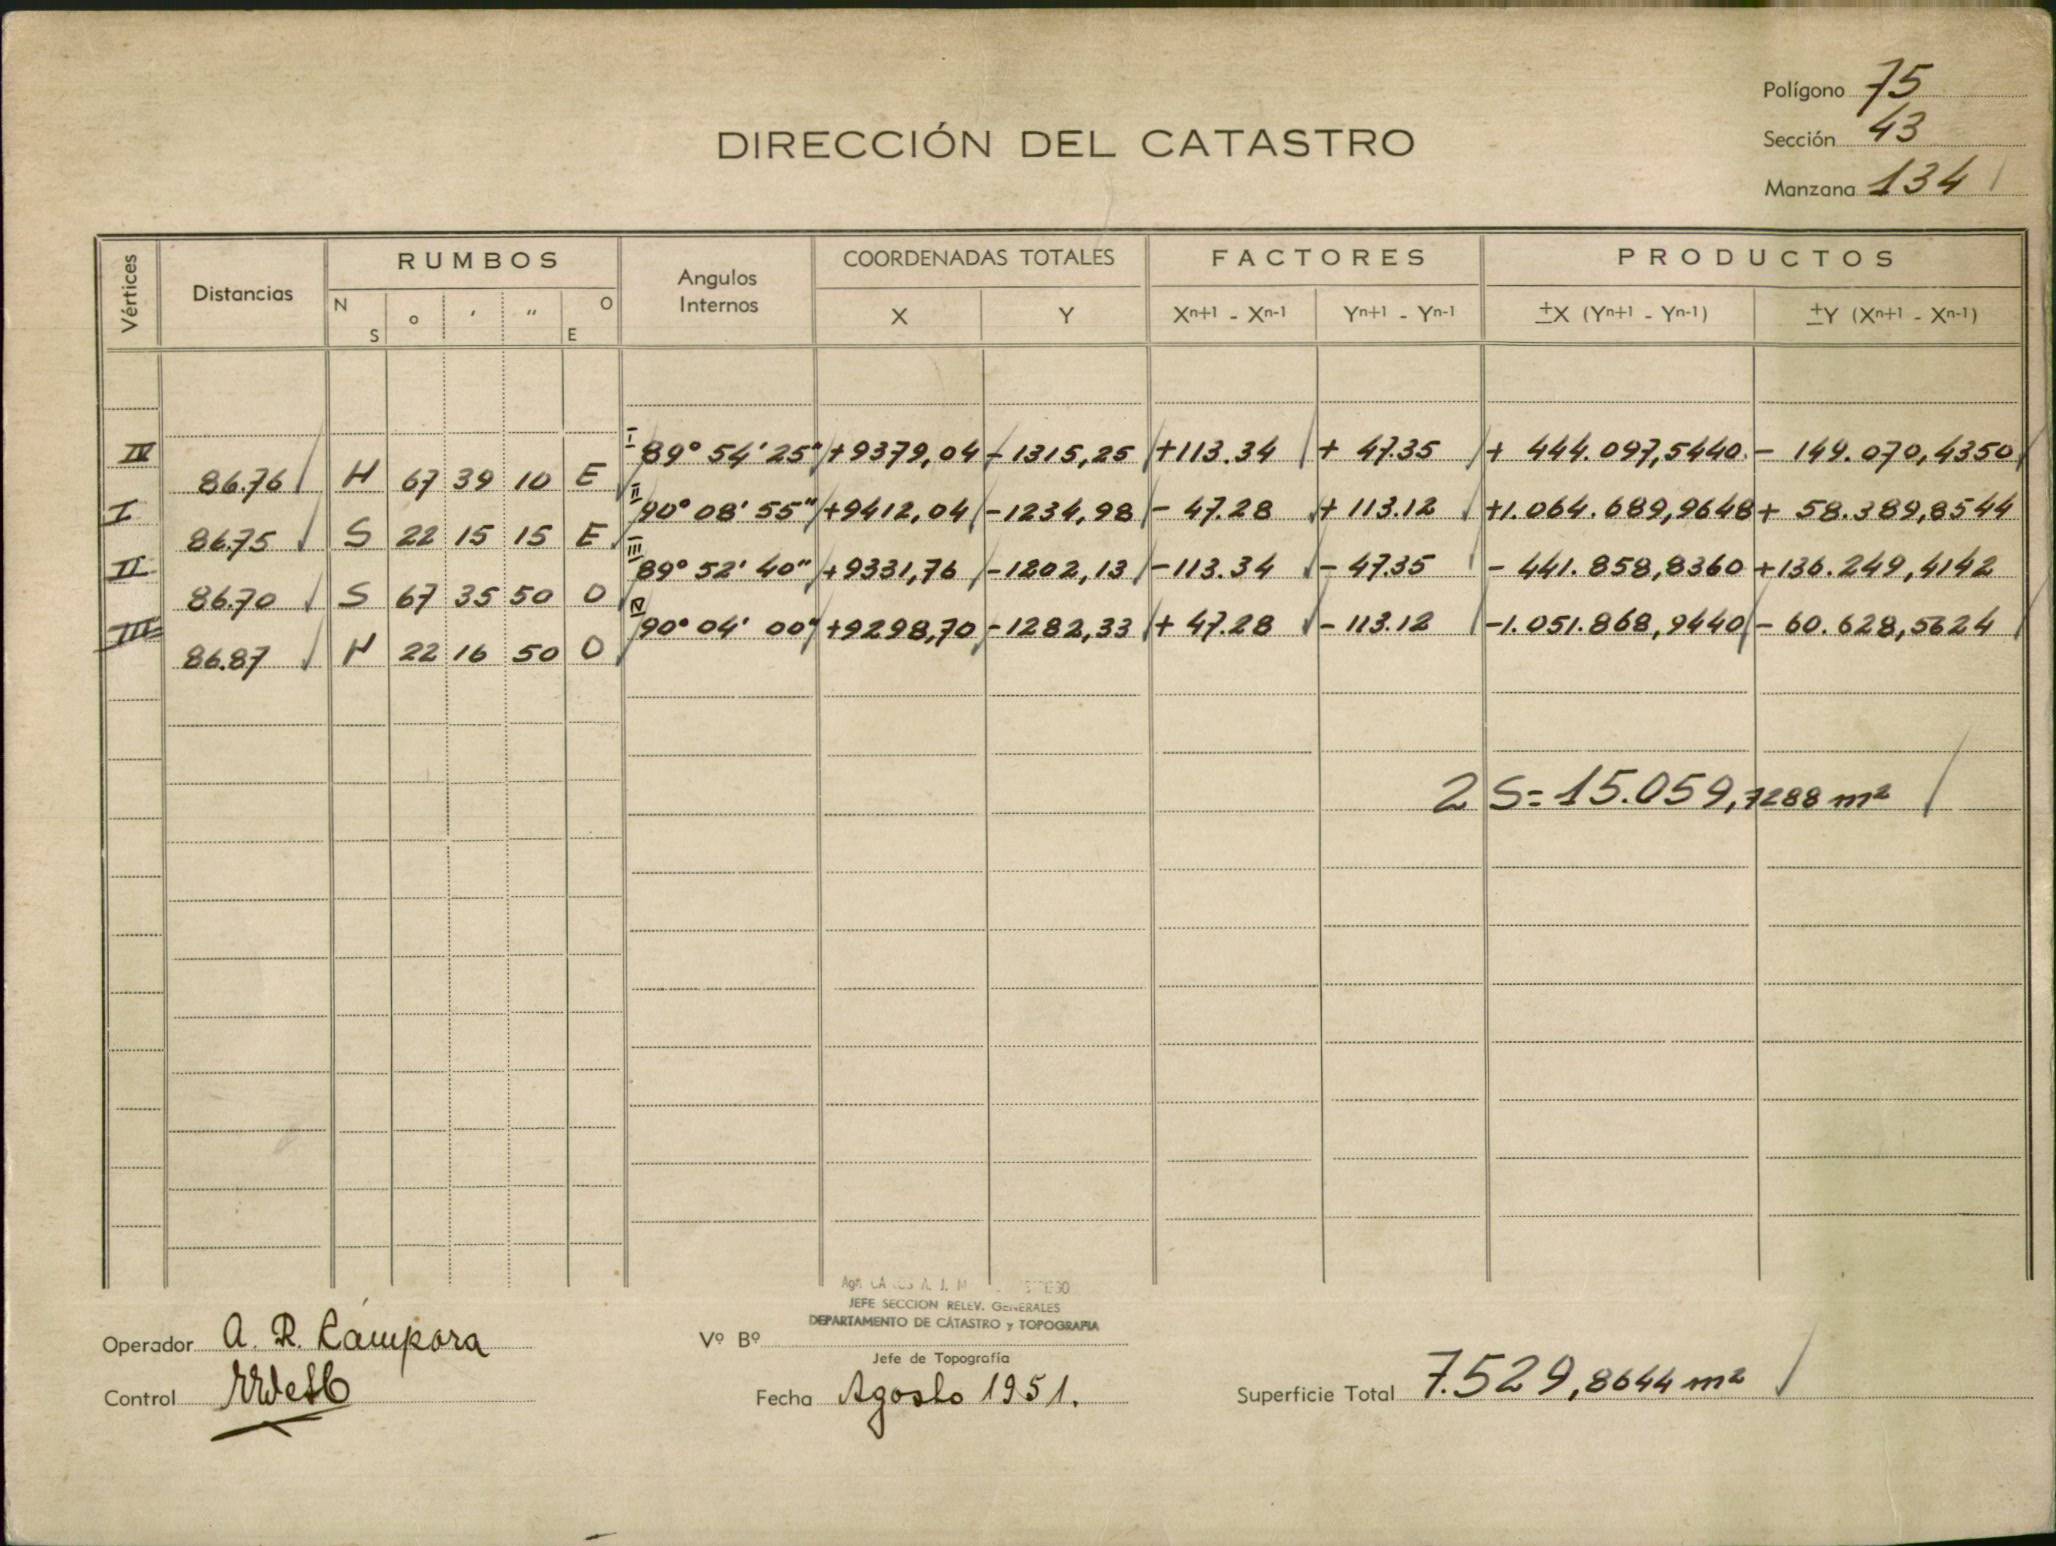 Polígono 75
Sección 43
Manzana 134
DIRECCIÓN DEL CATASTRO
Vértices Distancias RUMBOS Angulos Internos COORDENADAS TOTALES FACTORES PRODUCTOS
N S o ′ ″ O E X Y Xn+1 - Xn-1 Yn+1 - Yn-1 ±X (Yn+1 - Yn-1) ±Y (Xn+1 - Xn-1)
IV I 89° 54' 25" +9379,04 -1315,25 +113.34 + 47.35 + 444.097,5440 - 149.070,4350
86.76 N 67 39 10 E
I II 90° 08' 55" +9412,04 -1234,98 - 47.28 + 113.12 +1.064.689,9648 + 58.389,8544
86.75 S 22 15 15 E
II III 89° 52' 40" +9331,76 -1202,13 -113.34 - 47.35 - 441.858,8360 +136.249,4142
86.70 S 67 35 50 O
III IV 90° 04' 00" +9298,70 -1282,33 + 47.28 - 113.12 -1.051.868,9440 - 60.628,5624
86.87 N 22 16 50 O
2 S= 15.059,7288 m²
JEFE SECCION RELEV. GENERALES
DEPARTAMENTO DE CATASTRO y TOPOGRAFIA
Operador A. R. Cámpora
Vº Bº
Jefe de Topografía
Control
Fecha Agosto 1951.
Superficie Total 7.529,8644 m²